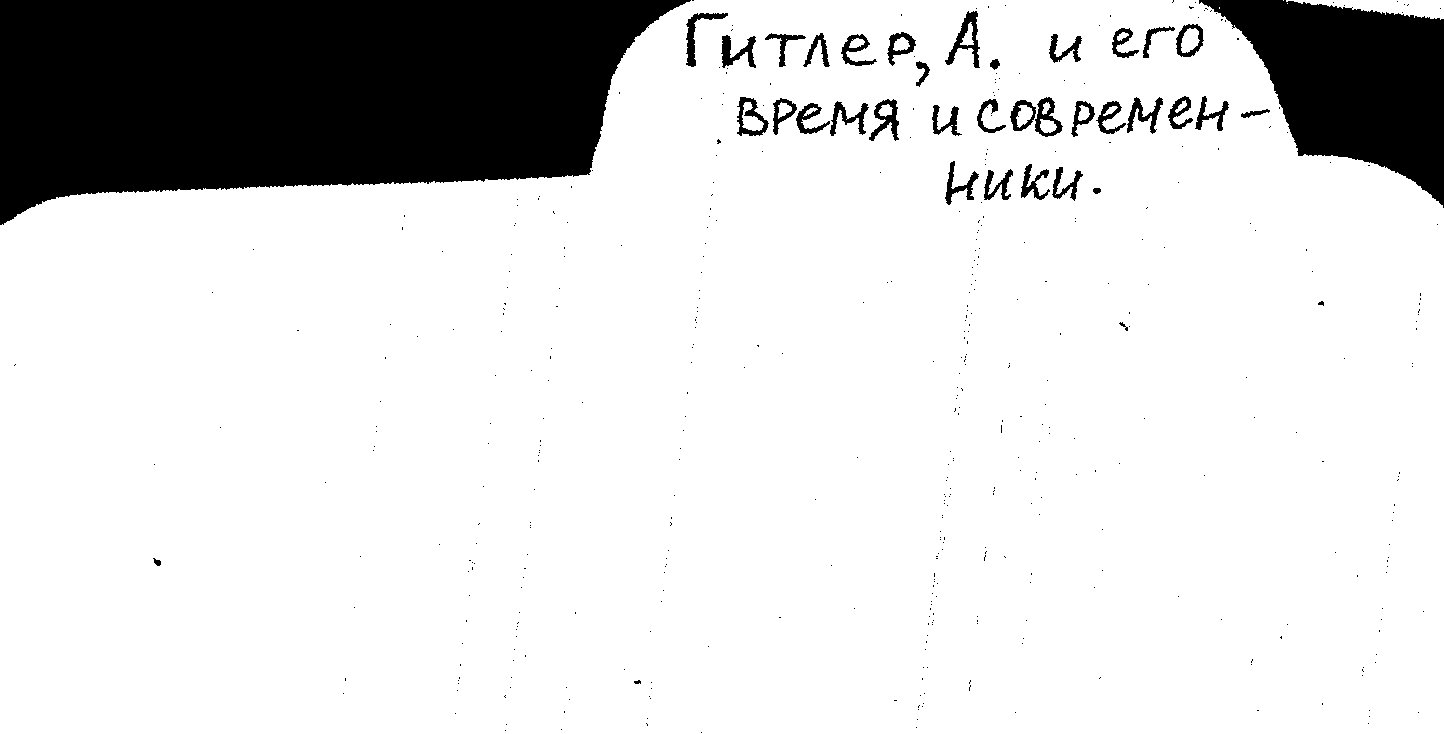 Гитлер, А. и его
время и современ-
ники.